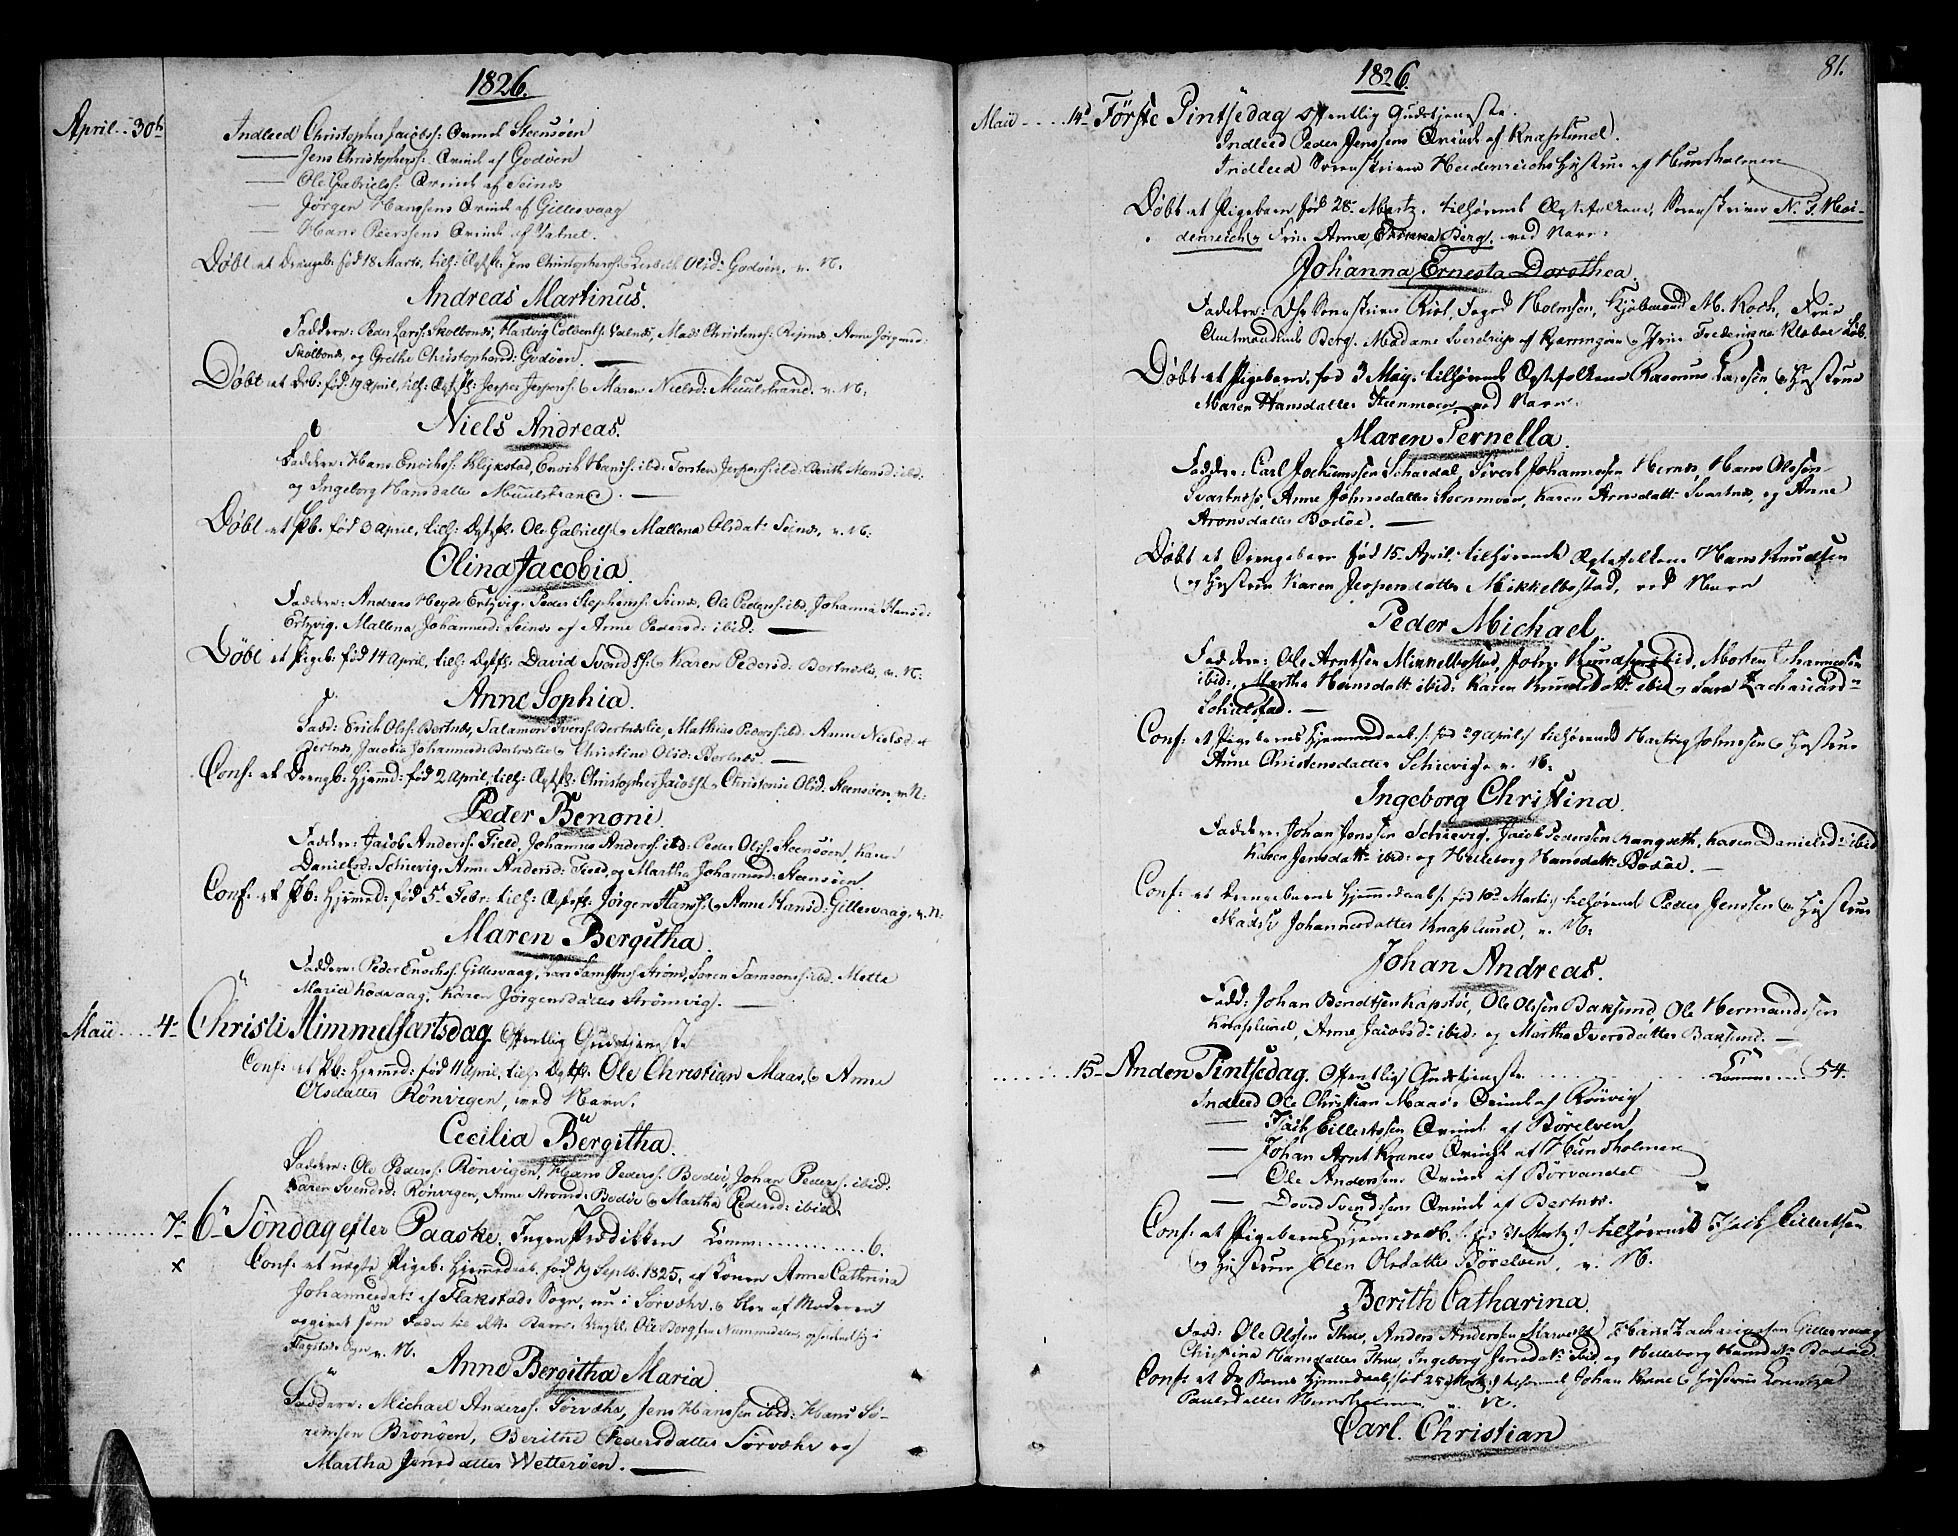 1826.
April 30te
Indleed Christopher Jacobs: Qvinde Steensöen
Jens Christophers: Qvinde af Godöen
Ole Gabriels: Qvinde af Seines
Jörgen Hanssens Qvinde af Gillesvaag
Hans Peerssens Qvinde af Valnes.
Döbt et Drengeb: föd 18 Marts, tilh: Ægtf: Jens Christophers: Lisbeth Olsd: Godöen, v. N.
Andreas Martinus.
Faddere: Peder Larss: Skolbones, Hartvig Valnes, Mads Christens: Anne Jörgensd:
og Grethe Christophersd: Godöen.
Döbt et Drb: föd 19 April, tilh: Ægtf: Jesper Jespers: & Maren Nielsd: Muulstrand. v. N:
Niels Andreas.
Faddere: Hans Enochs: Klijkstad, Enoch Hans: ibd: Torsten Jespers: ibd: Berith Mansd: ibd:
og Ingeborg Hansdatter Muulstrand.
Döbt et Pb. föd 3 April, tilh: Ægtf: Ole Gabriels & Mallena Olsdat: Seines, v. N:
Olina Jacobia.
Faddere: Andreas Heyde Ertzvig, Peder Stephens: Seines, Ole Peders: ibd, Johanna Hansd:
Ertzvig, Mallena Johannesd: Seines af Anne Pedersd: ibid:
Döbt et Pigeb: föd 14 April, tilh: Ægtf: David Svends: & Karen Pedersd: Bertneslie, v. N:
Anne Sophia.
Fadd: Erich Ols: Bertnes, Salamon Ivers: Bertneslie, Mathias Peders: ibd: Anne Nielsd:
Bertnes, Jacobia Johannesd: Bertneslie & Christine Olsd: Bertnes.
Conf: et Drengb: hjemd: föd 2 April, tilh: Ægtf: Christopher Jacobs & Christense Olsd: Steensöen, v. N:
Peder Benoni.
Faddere: Jacob Anders: Field, Johannes Anders: ibd: Peder Ols: Steensöen, Karen
Danielsd: Schievig, Anne Andersd: Field og Martha Johannesd: Steensöen.
Conf. et Pb: hjemd: föd 5t Febr: tilh: Ægtf: Jörgen Hans: & Anne Hansd: Gillesvaag, v. N:
Maren Bergitha.
Faddere: Peder Enochs: Gillesvaag, Lars Samsons: Ström, Sören Samsons: ibd. Mette
Maria Kodvaag, Karen Jörgensdatter Strömvig.
Maii 4de Christi Himmelfartsdag. Offentlig Gudstjeneste
Conf: et Pb: hjemd: föd 11 April, tilh: Ægtf: Ole Christian Maas, & Anne
Olsdatter Rönvigen, ved Navn:
Cecilia Bergitha.
Faddere: Ole Peders: Rönvigen, Hans Peders: Bodöe, Johan Peders: ibid:
Karen Svendsd: Rönvigen, Anne Aronsd: Bodöe & Martha Pedersd: ibid.
7de 6te Söndag efter Paaske. Ingen Prædikken Comm: 6.
x Conf: et uægte Pigeb: hjemmedaab, föd 19 Septb: 1825, af Konen Anne Cathrina
Johannesdat: af Flakstads Sogn, nu i Sörvæhr. & blev af Moderen
opgivet som Fader til dette Barn: Ole Borgsen Nummedalen, opholdelig i
Flagstads Sogn v. N.
Anne Bergitha Maria
Faddere: Michael Anders: Sörvæhr, Jens Hanssen ibid: Hans Sö-
rensen Brönöen, Berithe Pedersdatter Sörvæhr og
Martha Jensdatter Wetteröen.
1826.
81.
Maii 14d Förste Pintsedag offentlig Gudstjeneste.
Indleed Peder Jenssens Qvinde af Knaplund.
Indleed Sorenskriver Heidenreichs Hustrue af Hundholmen
Döbt et Pigebarn föd 28de Martz. tilhörende Ægtefolkene, Sorenskriver N. J. Hei-
denreich & Frue Anna Berg. ved Navn:
Johanna Ernesta Dorothea.
Faddere: Hr Sorenskriver Rist, Foged Holmsen, Kjöbmand M. Koch, Frue
Amtmandinde Berg, Madame Sverdrup af Kjerringöen & Frue Frederikke Klæboe Löb.
Döbt et Pigebarn, föd 3 May, tilhörende Ægtefolkene Rasmus Larsen & Hustrue
Maren Hansdatter Steenmoen ved Navn:
Maren Pernella.
Faddere: Carl Jochumssen Schaedal, Sivert Johannessen Hernes, Hans Olssen
Svartnes, Anne Johnsdatter Steenmoen, Karen Arnsdatt: Svartnes, og Anne
Aronsdatter Bodöe.
Döbt et Drengebarn föd 15 April tilhörende Ægtefolkene Hans Knudtsen
& Hustrue Karen Jespersdatter Mikkelbostad, ved Navn
Peder Michael.
Faddere: Ole Arntsen Mikkelbostad, John Knudsen ibid, Morten Johannessen
ibid:, Martha Hansdatt: ibid: Karen Knudsdatt: ibid & Sara Zachariasd:
Schielstad.
Conf: et Pigebarns Hjemmedaab (: föd 29 April :) tilhörende Hartvig Johnssen & Hustrue
Anne Christensdatter Schievig, v. N:
Ingeborg Christina.
Faddere: Johan Jenssen Schievig, Jacob Pederssen Kongseth, Karen Danielsd: ibid
Karen Jensdatt: ibid: og Helleborg Hansdatt: Bodöe.
Conf: et Drengebarns hjemmedaab (: föd 10d Martz :) tilhörende Peder Jenssen & Hustrue
Johannesdatter Knaplund, v. N:
Johan Andreas.
Fadd: Johan Bendtsen Kapstöe, Ole Olssen Baksund, Ole Hermandssen
Knaplund, Anne Jacobsd: ibid: og Martha Iversdatter Baksund.
15de Anden Pintsedag. Offentlig Gudstjeneste. Comm: 54.
Indleed Ole Christian Maas's Qvinde af Rönvig
Isach Eillertssen Qvinde af Börelven
Johan Arnt Kranes Qvinde af Hundholmen
Ole Anderssens Qvinde af Börvandet
David Svendssens Qvinde af Bertnes.
Conf: et Pigebarns Hjemmedaab. (: föd 31 Martz :) tilhörende Isach Eillertsen
& Hustrue Elen Olsdatter Börelven, v. N.
Berith Catharina.
Fadd: Ole Olssen Thue, Anders Anderssen Marvold, Hans Zachariassen Gillesvaag
Christina Hansdatter Thue, Ingeborg Jensdat: ibid, og Helleborg Hansdat: Bodöe.
Conf: et Dr Barns hjemmedaab (: föd 25 Martz :) tilhörende Johan Krane & Hustrue Lorentza
Paulsdatter Hundholmen v. N.
Carl Christian